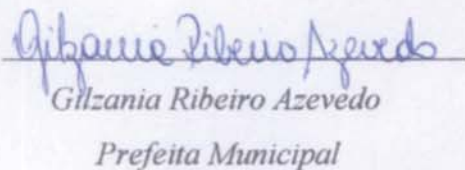 Gilzania Ribeiro Azevedo
Gilzania Ribeiro Azevedo
Prefeita Municipal